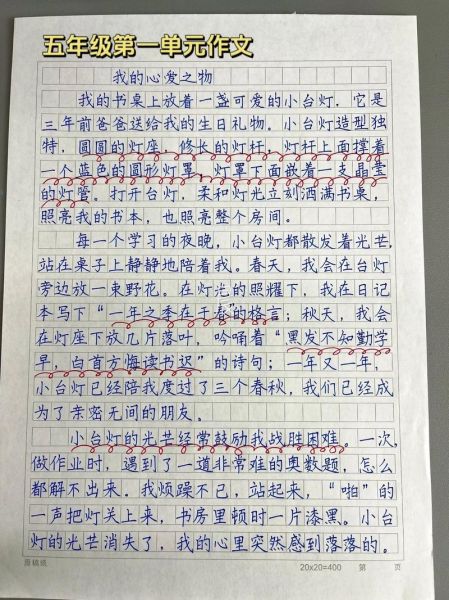 五年级第一单元作文
我的心爱之物
我的书桌上放着一盏可爱的小台灯，它是
三年前爸爸送给我的生日礼物。小台灯造型独
特，圆圆的灯座，修长的灯杆，灯杆上面撑着
一个蓝色的圆形灯罩，灯罩下面嵌着一支晶莹
的灯管。打开台灯，柔和灯光立刻洒满书桌，
照亮我的书本，也照亮整个房间。
每一个学习的夜晚，小台灯都散发着光芒，
站在桌子上静静地陪着我。春天，我会在台灯
旁边放一束野花。在灯光的照耀下，我在日记
本写下“一年之季在于春”的格言；秋天，我会
在灯座下放几片落叶，吟诵着“黑发不知勤学
早，白首方悔读书迟”的诗句；一年又一年，
小台灯已经陪我度过了三个春秋，我们已经成
为了亲密无间的朋友。
小台灯的光芒经常鼓励我战胜困难。一次，
做作业时，遇到了一道非常难的奥数题，怎么
都解不出来。我烦躁不已，站起来，“啪”的
一声把灯关上来，书房里顿时一片漆黑。小台
灯的光芒消失了，我的心里突然感到落落的。
原稿纸 20x20=400 第 页